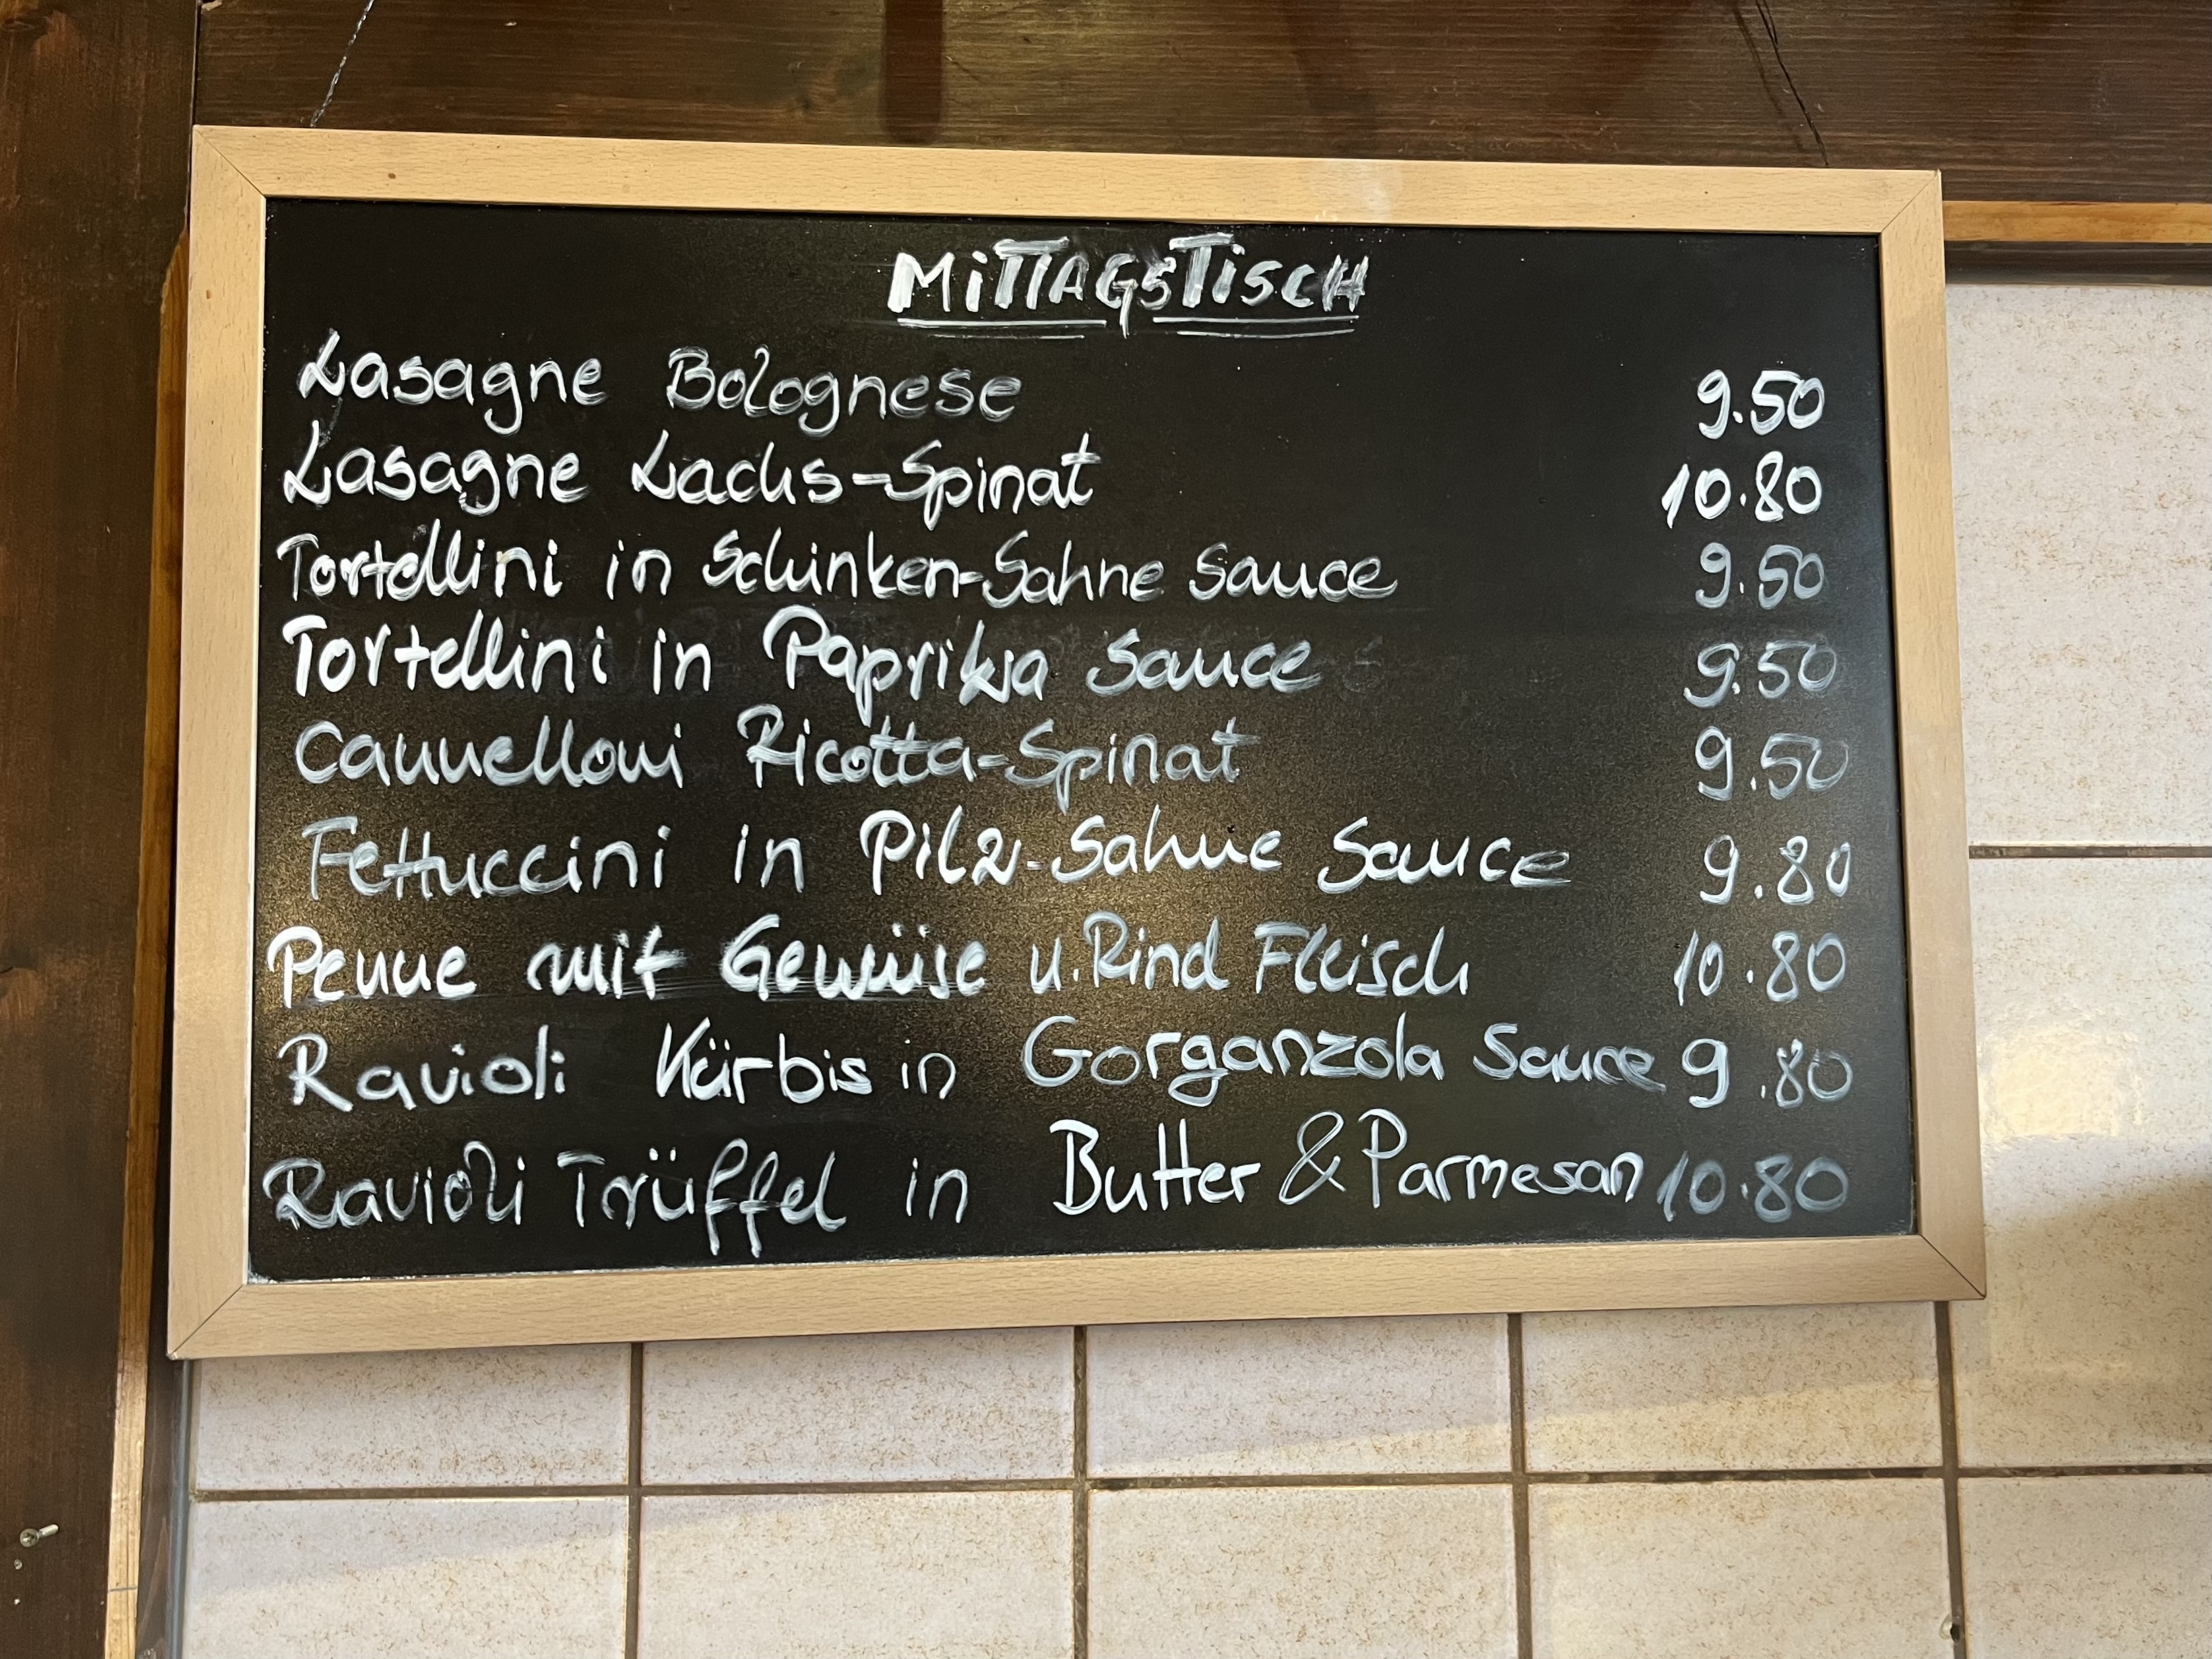 MiTTAGSTiSCH
Lasagne Bolognese 9.50
Lasagne Lachs-Spinat 10.80
Tortellini in Schinken-Sahne Sauce 9.50
Tortellini in Paprika Sauce 9.50
Cannelloni Ricotta-Spinat 9.50
Fettuccini in Pilz-Sahne Sauce 9.80
Penne mit Gemüse u. Rind Fleisch 10.80
Ravioli Kürbis in Gorganzola Sauce 9.80
Ravioli Trüffel in Butter & Parmesan 10.80